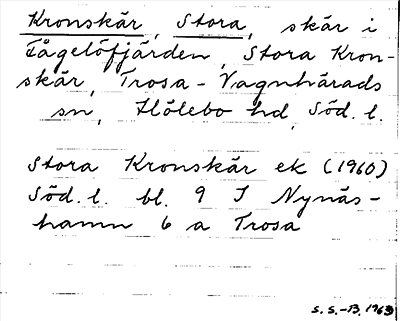 Kronskär, Stora, skär i
Fågelöfjärden, Stora Kron-
skär, Trosa-Vagnhärads
sn, Hölebo hd, Söd. l.
Stora Kronskär ek (1960)
Söd. l. bl. 9 I Nynäs-
hamn 6 a Trosa
S. S.-B. 1963